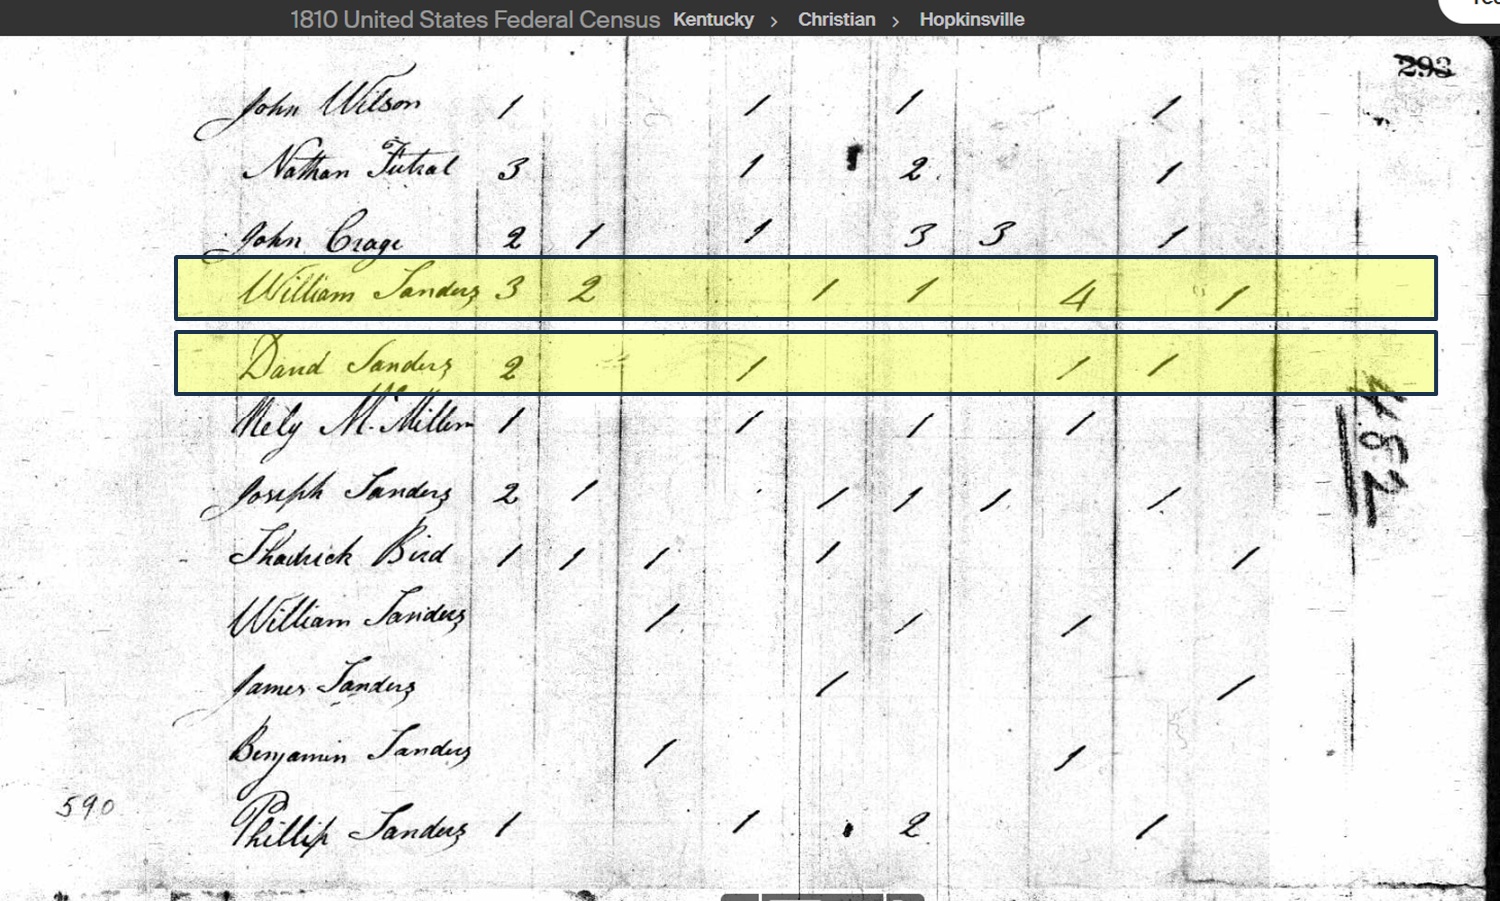 1810 United States Federal Census Kentucky > Christian > Hopkinsville
293
John Wilson 1 1 1 1
Nathan Futral 3 1 2 1
John Crage 2 1 1 3 3 1
William Sanders 3 2 1 1 4 1
David Sanders 2 1 1 1
Nely McMillen 1 1 1 1
Joseph Sanders 2 1 1 1 1 1
Thadrick Bird 1 1 1 1 1
William Sanders 1 1 1
James Sanders 1 1
Benjamin Sanders 1 1
590
Phillip Sanders 1 1 2 1
482